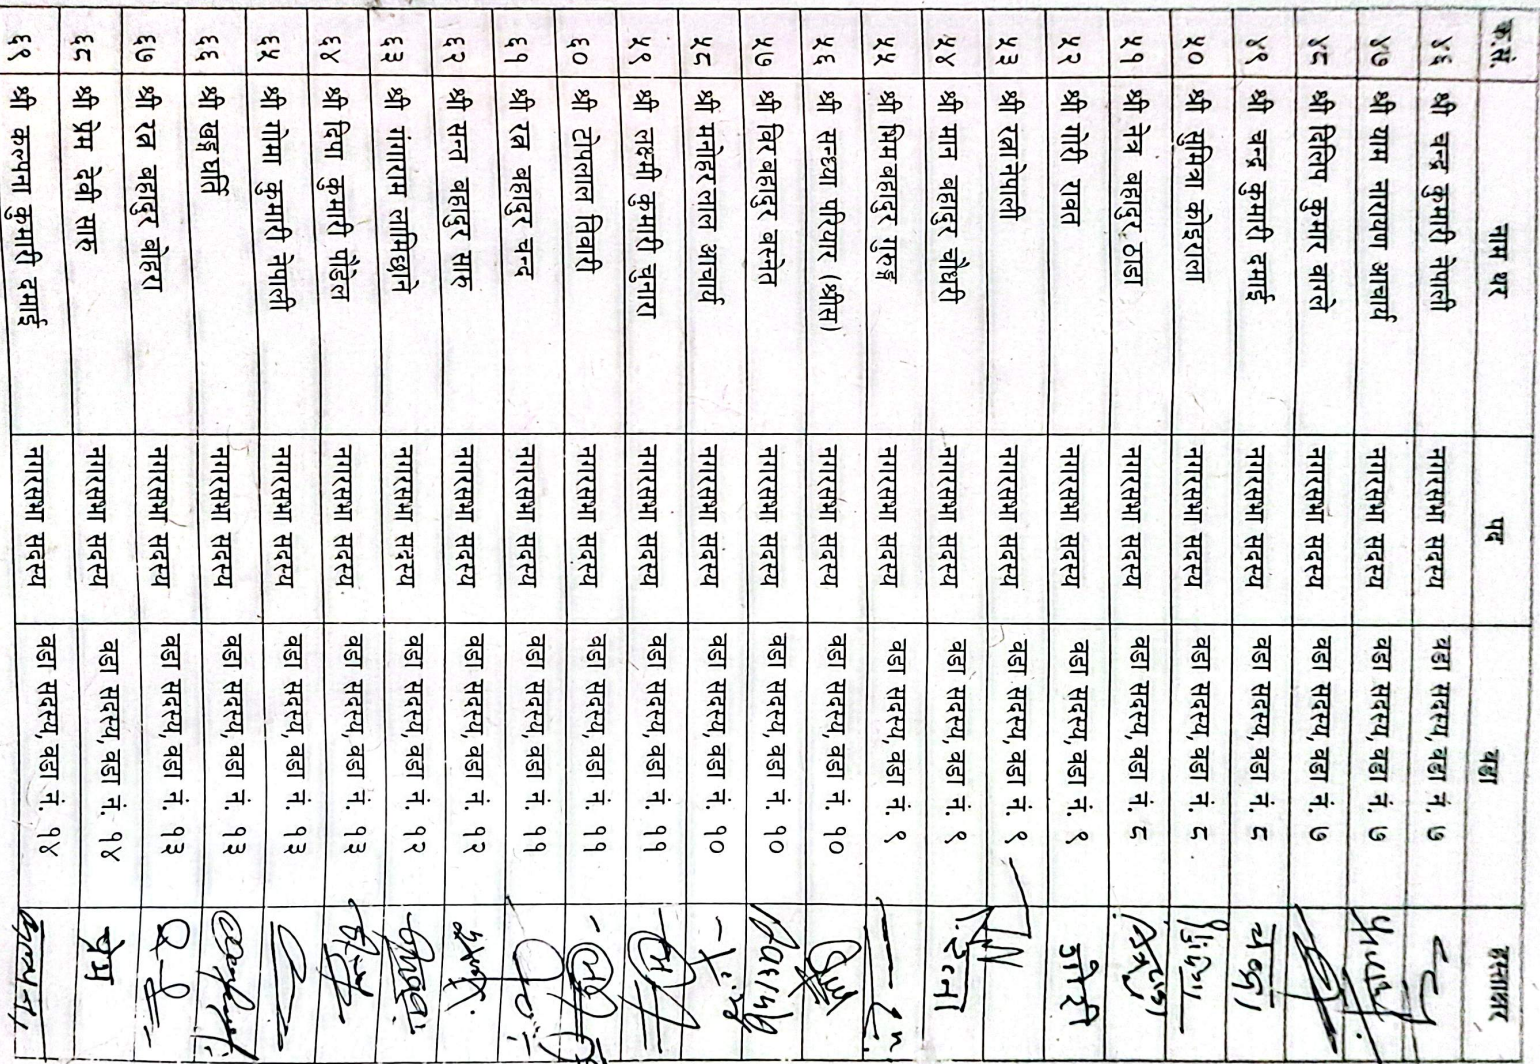 क.सं. नाम थर पद वडा हस्ताक्षर
४६ श्री चन्द्र कुमारी नेपाली नगरसभा सदस्य वडा सदस्य, वडा नं. ७
४७ श्री याम नारायण आचार्य नगरसभा सदस्य वडा सदस्य, वडा नं. ७
४८ श्री दिलिप कुमार वाग्ले नगरसभा सदस्य वडा सदस्य, वडा नं. ७
४९ श्री चन्द्र कुमारी दमाई नगरसभा सदस्य वडा सदस्य, वडा नं. ८ चन्द्रा
५० श्री सुमित्रा कोइराला नगरसभा सदस्य वडा सदस्य, वडा नं. ८
५१ श्री नेत्र बहादुर ठाडा नगरसभा सदस्य वडा सदस्य, वडा नं. ८
५२ श्री गोरी रावत नगरसभा सदस्य वडा सदस्य, वडा नं. ९ गोरी
५३ श्री रत्ना नेपाली नगरसभा सदस्य वडा सदस्य, वडा नं. ९ रत्ना
५४ श्री मान बहादुर चौधरी नगरसभा सदस्य वडा सदस्य, वडा नं. ९
५५ श्री भिम बहादुर गुरुङ नगरसभा सदस्य वडा सदस्य, वडा नं. ९
५६ श्री सन्ध्या परियार (श्रीस) नगरसभा सदस्य वडा सदस्य, वडा नं. १०
५७ श्री विर बहादुर बस्नेत नगरसभा सदस्य वडा सदस्य, वडा नं. १०
५८ श्री मनोहर लाल आचार्य नगरसभा सदस्य वडा सदस्य, वडा नं. १०
५९ श्री लक्ष्मी कुमारी चुनारा नगरसभा सदस्य वडा सदस्य, वडा नं. ११
६० श्री टोपलाल तिवारी नगरसभा सदस्य वडा सदस्य, वडा नं. ११
६१ श्री रत्न बहादुर चन्द नगरसभा सदस्य वडा सदस्य, वडा नं. ११
६२ श्री सन्त बहादुर सारु नगरसभा सदस्य वडा सदस्य, वडा नं. १२
६३ श्री गंगाराम लामिछाने नगरसभा सदस्य वडा सदस्य, वडा नं. १२
६४ श्री दिपा कुमारी पौडेल नगरसभा सदस्य वडा सदस्य, वडा नं. १३
६५ श्री गोमा कुमारी नेपाली नगरसभा सदस्य वडा सदस्य, वडा नं. १३
६६ श्री खड्ग घर्ति नगरसभा सदस्य वडा सदस्य, वडा नं. १३
६७ श्री रत्न बहादुर बोहरा नगरसभा सदस्य वडा सदस्य, वडा नं. १३
६८ श्री प्रेम देवी सारु नगरसभा सदस्य वडा सदस्य, वडा नं. १४ प्रेम
६९ श्री कल्पना कुमारी दमाई नगरसभा सदस्य वडा सदस्य, वडा नं. १४ कल्पना